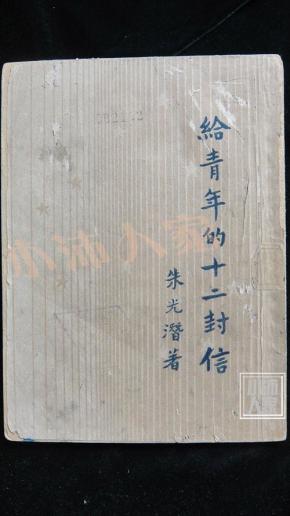 給青年的十二封信
朱光潛著
小沛人家